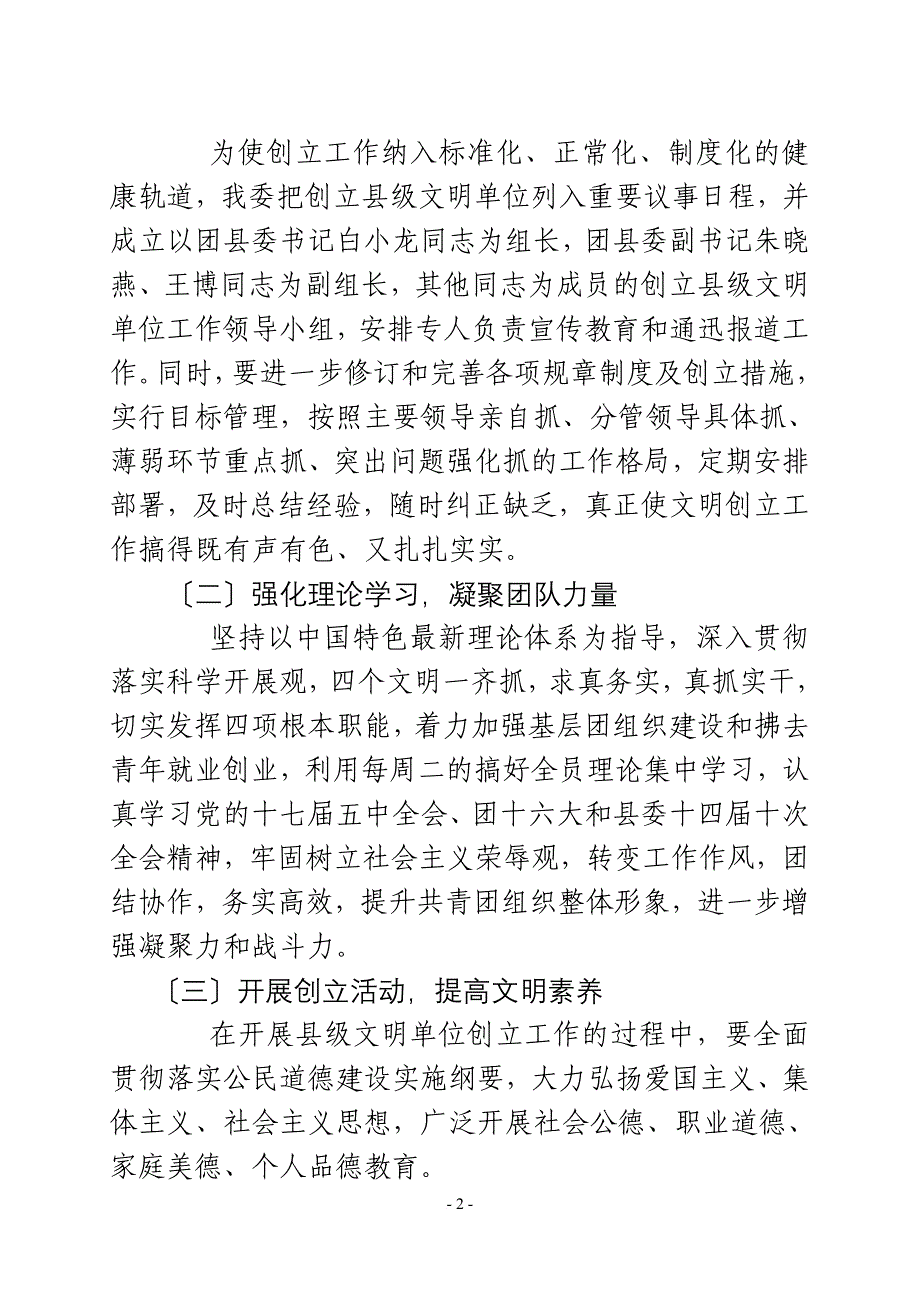 为使创立工作纳入标准化、正常化、制度化的健
康轨道，我委把创立县级文明单位列入重要议事日程，并
成立以团县委书记白小龙同志为组长，团县委副书记朱晓
燕、王博同志为副组长，其他同志为成员的创立县级文明
单位工作领导小组，安排专人负责宣传教育和通迅报道工
作。同时，要进一步修订和完善各项规章制度及创立措施，
实行目标管理，按照主要领导亲自抓、分管领导具体抓、
薄弱环节重点抓、突出问题强化抓的工作格局，定期安排
部署，及时总结经验，随时纠正缺乏，真正使文明创立工
作搞得既有声有色、又扎扎实实。
〔二〕强化理论学习，凝聚团队力量
坚持以中国特色最新理论体系为指导，深入贯彻
落实科学开展观，四个文明一齐抓，求真务实，真抓实干，
切实发挥四项根本职能，着力加强基层团组织建设和拂去
青年就业创业，利用每周二的搞好全员理论集中学习，认
真学习党的十七届五中全会、团十六大和县委十四届十次
全会精神，牢固树立社会主义荣辱观，转变工作作风，团
结协作，务实高效，提升共青团组织整体形象，进一步增
强凝聚力和战斗力。
〔三〕开展创立活动，提高文明素养
在开展县级文明单位创立工作的过程中，要全面
贯彻落实公民道德建设实施纲要，大力弘扬爱国主义、集
体主义、社会主义思想，广泛开展社会公德、职业道德、
家庭美德、个人品德教育。
- 2 -